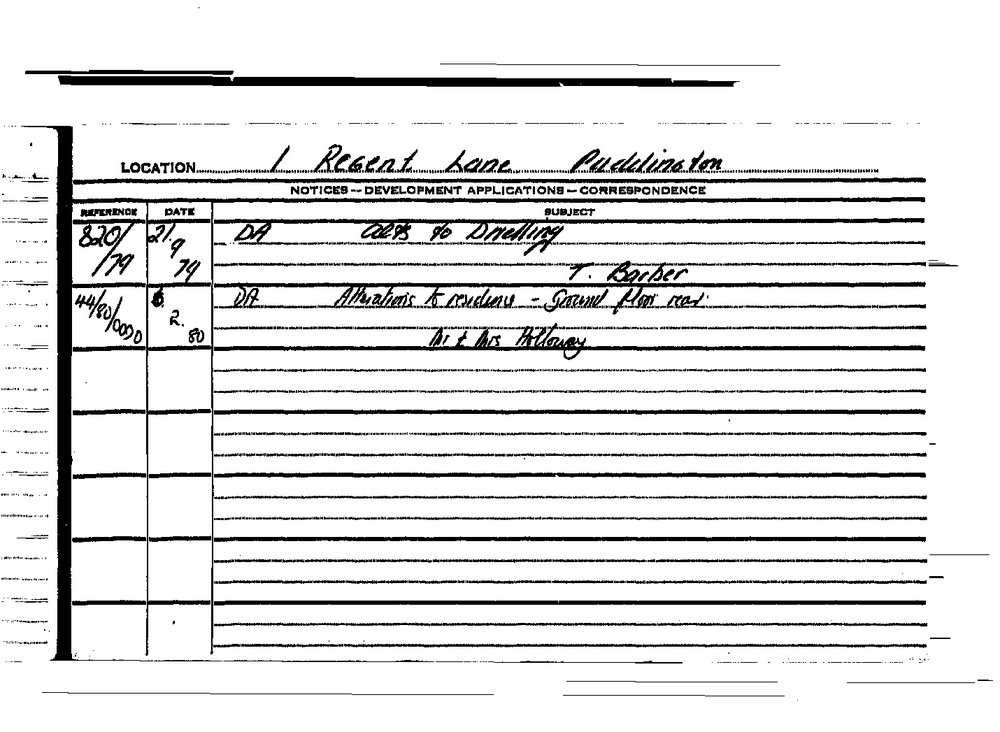 LOCATION 1 Regent Lane Paddington
NOTICES — DEVELOPMENT APPLICATIONS — CORRESPONDENCE
REFERENCE DATE SUBJECT
820/ 21. DA Alts to Dwelling
/79 9
79 T. Barber
44/80/0090 6. DA Alterations to residence - Ground floor rear.
2.
80 Mr & Mrs Holloway